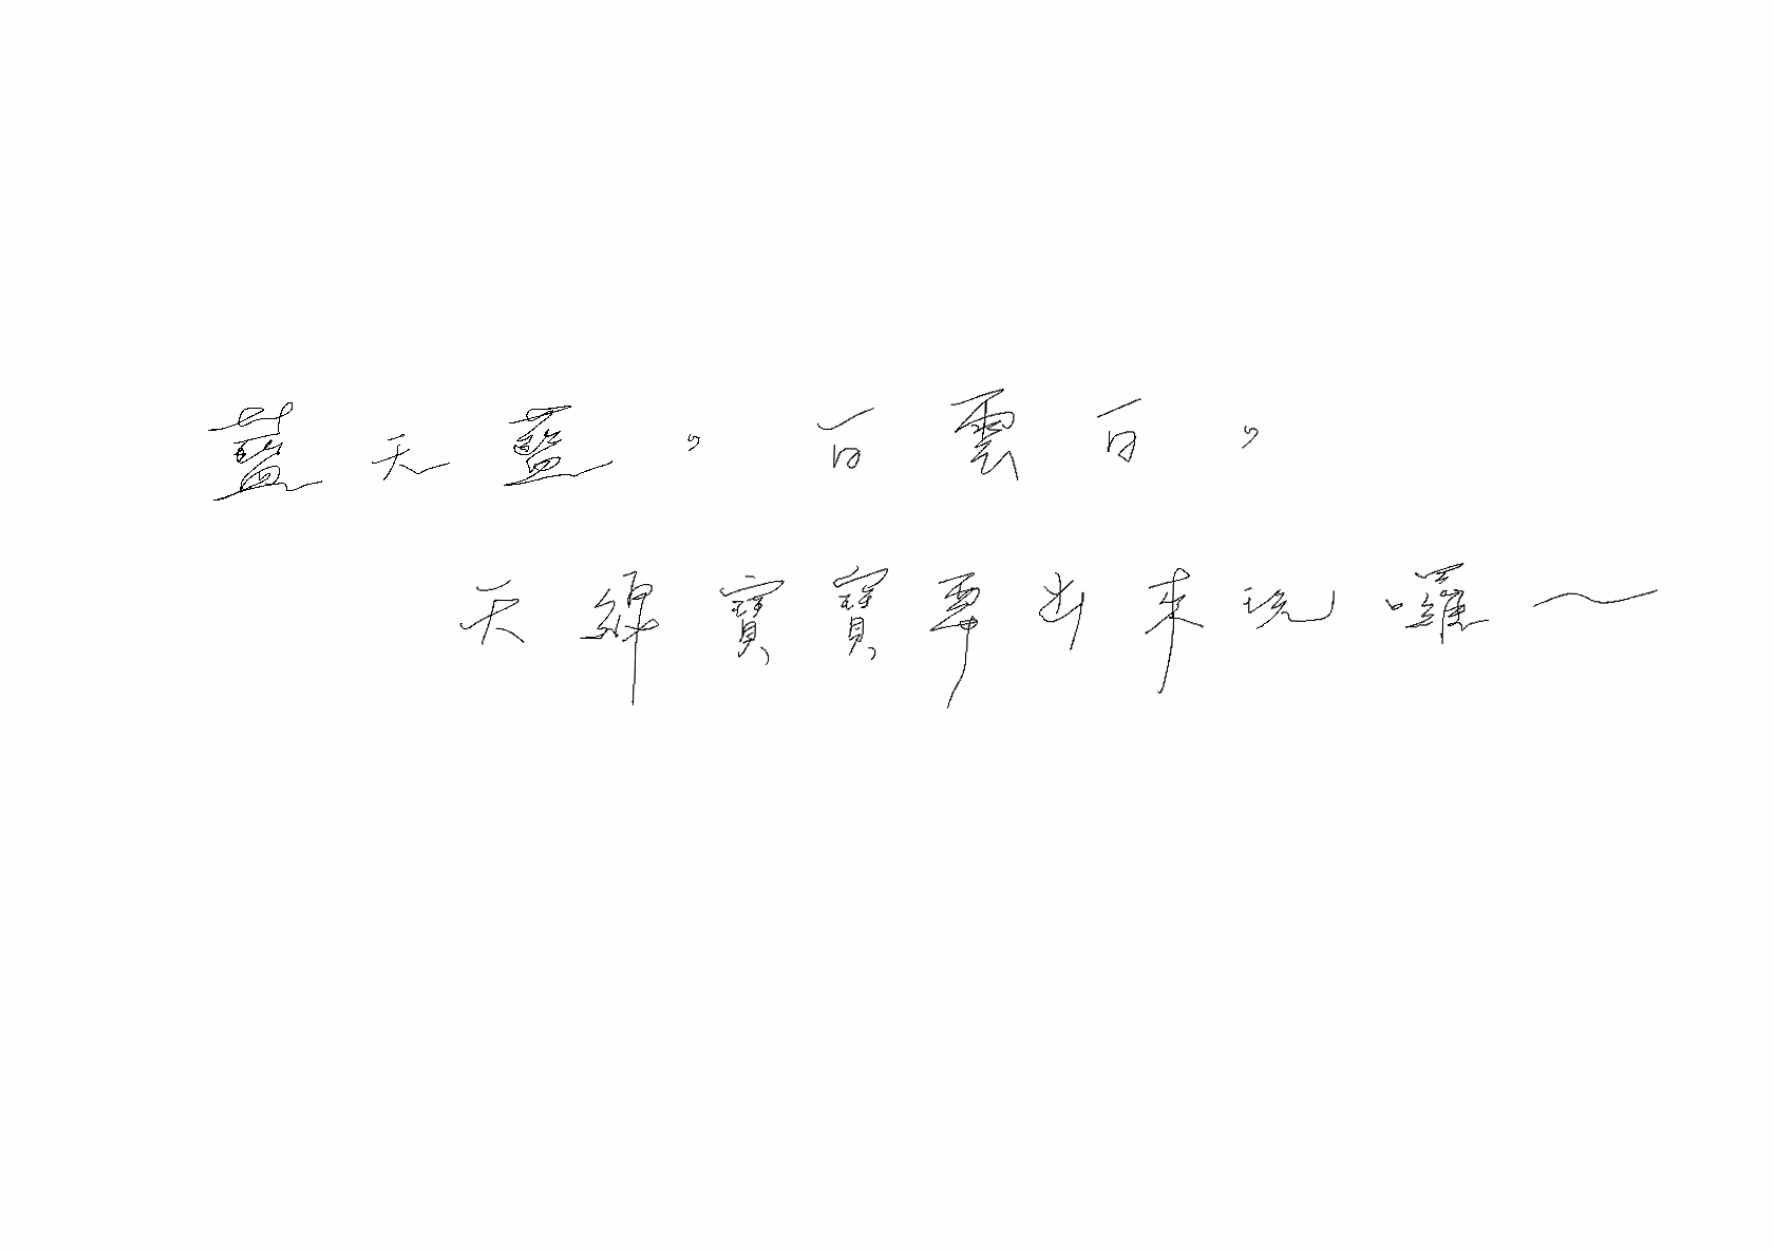 藍天藍，白雲白，
天線寶寶要出來玩囉～